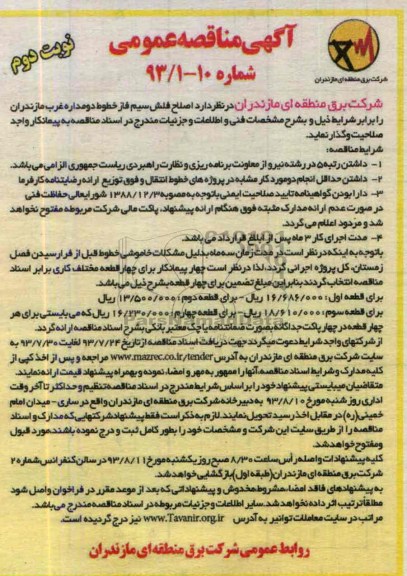 آگهی مناقصه عمومی
شماره ۱۰-۹۳/۱
نوبت دوم
شرکت برق منطقه ای مازندران
شرکت برق منطقه ای مازندران در نظر دارد اصلاح فلش سیم فاز خطوط دومداره غرب مازندران
را برابر شرایط ذیل و بشرح مشخصات فنی و اطلاعات و جزئیات مندرج در اسناد مناقصه به پیمانکار واجد
صلاحیت واگذار نماید.
شرایط مناقصه:
۱- داشتن رتبه ۵ در رشته نیرو از معاونت برنامه ریزی و نظارت راهبردی ریاست جمهوری الزامی می باشد.
۲- داشتن حداقل انجام دو مورد کار مشابه در پروژه های خطوط انتقال و فوق توزیع ارائه رضایتنامه کارفرما
۳- دارا بودن گواهینامه تایید صلاحیت ایمنی با توجه به مصوبه ۱۳۸۸/۱۲/۳ شورایعالی حفاظت فنی
در صورت عدم ارائه مدارک مثبته فوق هنگام ارائه پیشنهاد، پاکت مالی شرکت مربوطه مفتوح نخواهد
شد و مردود اعلام می گردد.
۴- مدت اجرای کار ۳ ماه پس از ابلاغ قرارداد می باشد.
با توجه به اینکه در نظر است در مدت زمان سه ماه بدلیل مشکلات خاموشی خطوط قبل از فرا رسیدن فصل
زمستان، کل پروژه اجرائی گردد، لذا در نظر است چهار پیمانکار برای چهار قطعه مختلف کاری برابر اسناد
مناقصه انتخاب گردند بنابراین مبلغ تضمین برای چهار قطعه بشرح ذیل می باشد.
برای قطعه اول : ۱۶/۶۸۶/۰۰۰ ریال - برای قطعه دوم : ۱۳/۵۰۰/۰۰۰ ریال
برای قطعه سوم : ۱۸/۶۱۰/۰۰۰ ریال - برای قطعه چهارم : ۱۶/۲۳۰/۰۰۰ ریال که می بایستی برای هر
چهار قطعه در چهار پاکت جداگانه بصورت ضمانتنامه یا چک معتبر بانکی بشرح اسناد مناقصه ارائه گردد.
از شرکتهای واجد شرایط دعوت میگردد جهت دریافت اسناد مناقصه از تاریخ ۹۳/۷/۲۶ لغایت ۹۳/۷/۳۰ به
سایت شرکت برق منطقه ای مازندران به آدرس www.mazrec.co.ir/tender مراجعه و پس از اخذ کپی از
کلیه مدارک و شرایط اسناد مناقصه، آنها را ممهور به مهر و امضا، نموده و بهمراه پیشنهاد قیمت ارائه نمایند.
متقاضیان میبایستی پیشنهاد خود را بر اساس شرایط مندرج در اسناد مناقصه تنظیم و حداکثر تا آخر وقت
اداری روز شنبه مورخ ۹۳/۸/۱۰ به دبیرخانه شرکت برق منطقه ای مازندران واقع در ساری - میدان امام
خمینی (ره) در مقابل اخذ رسید تحویل نمایند. لازم به ذکر است فقط پیشنهاد شرکتهایی که مدارک و اسناد
مناقصه را از طریق سایت این شرکت و مشخصات خود را بطور کامل ثبت و درج نموده باشند، مورد قبول
و مفتوح خواهد شد.
کلیه پیشنهادات واصله راس ساعت ۸/۳۰ صبح روز یکشنبه مورخ ۹۳/۸/۱۱ در سالن کنفرانس شماره ۲
شرکت برق منطقه ای مازندران (طبقه اول) بازگشایی خواهد شد.
به پیشنهادهای فاقد امضاء، مشروط، مخدوش و پیشنهاداتی که بعد از موعد مقرر در فراخوان واصل شود
مطلقاً ترتیب اثر داده نخواهد شد. سایر اطلاعات و جزئیات مربوطه در اسناد مناقصه مندرج می باشد.
مراتب در سایت معاملات توانیر به آدرس www.Tavanir.org.ir نیز درج گردیده است.
روابط عمومی شرکت برق منطقه ای مازندران